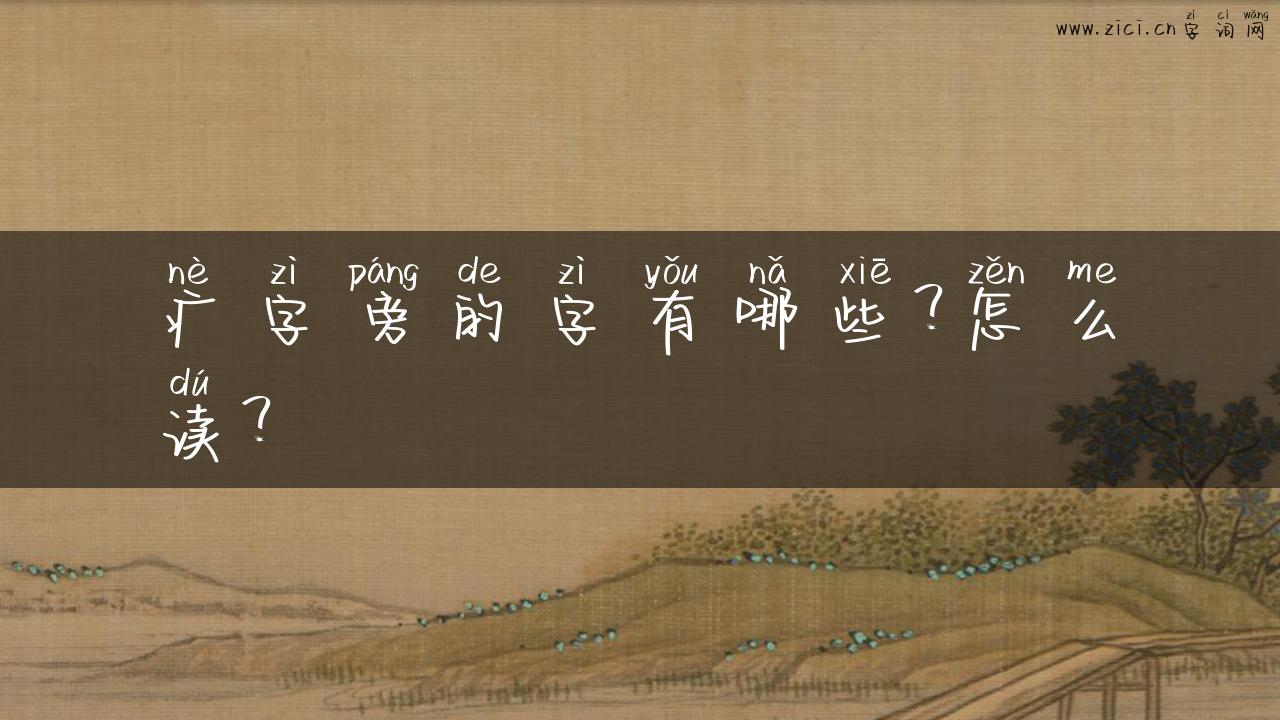 zì cí wǎng
www.zici.cn字词网
nè zì páng de zì yǒu nǎ xiē zěn me
疒字旁的字有哪些?怎么
dú
读?